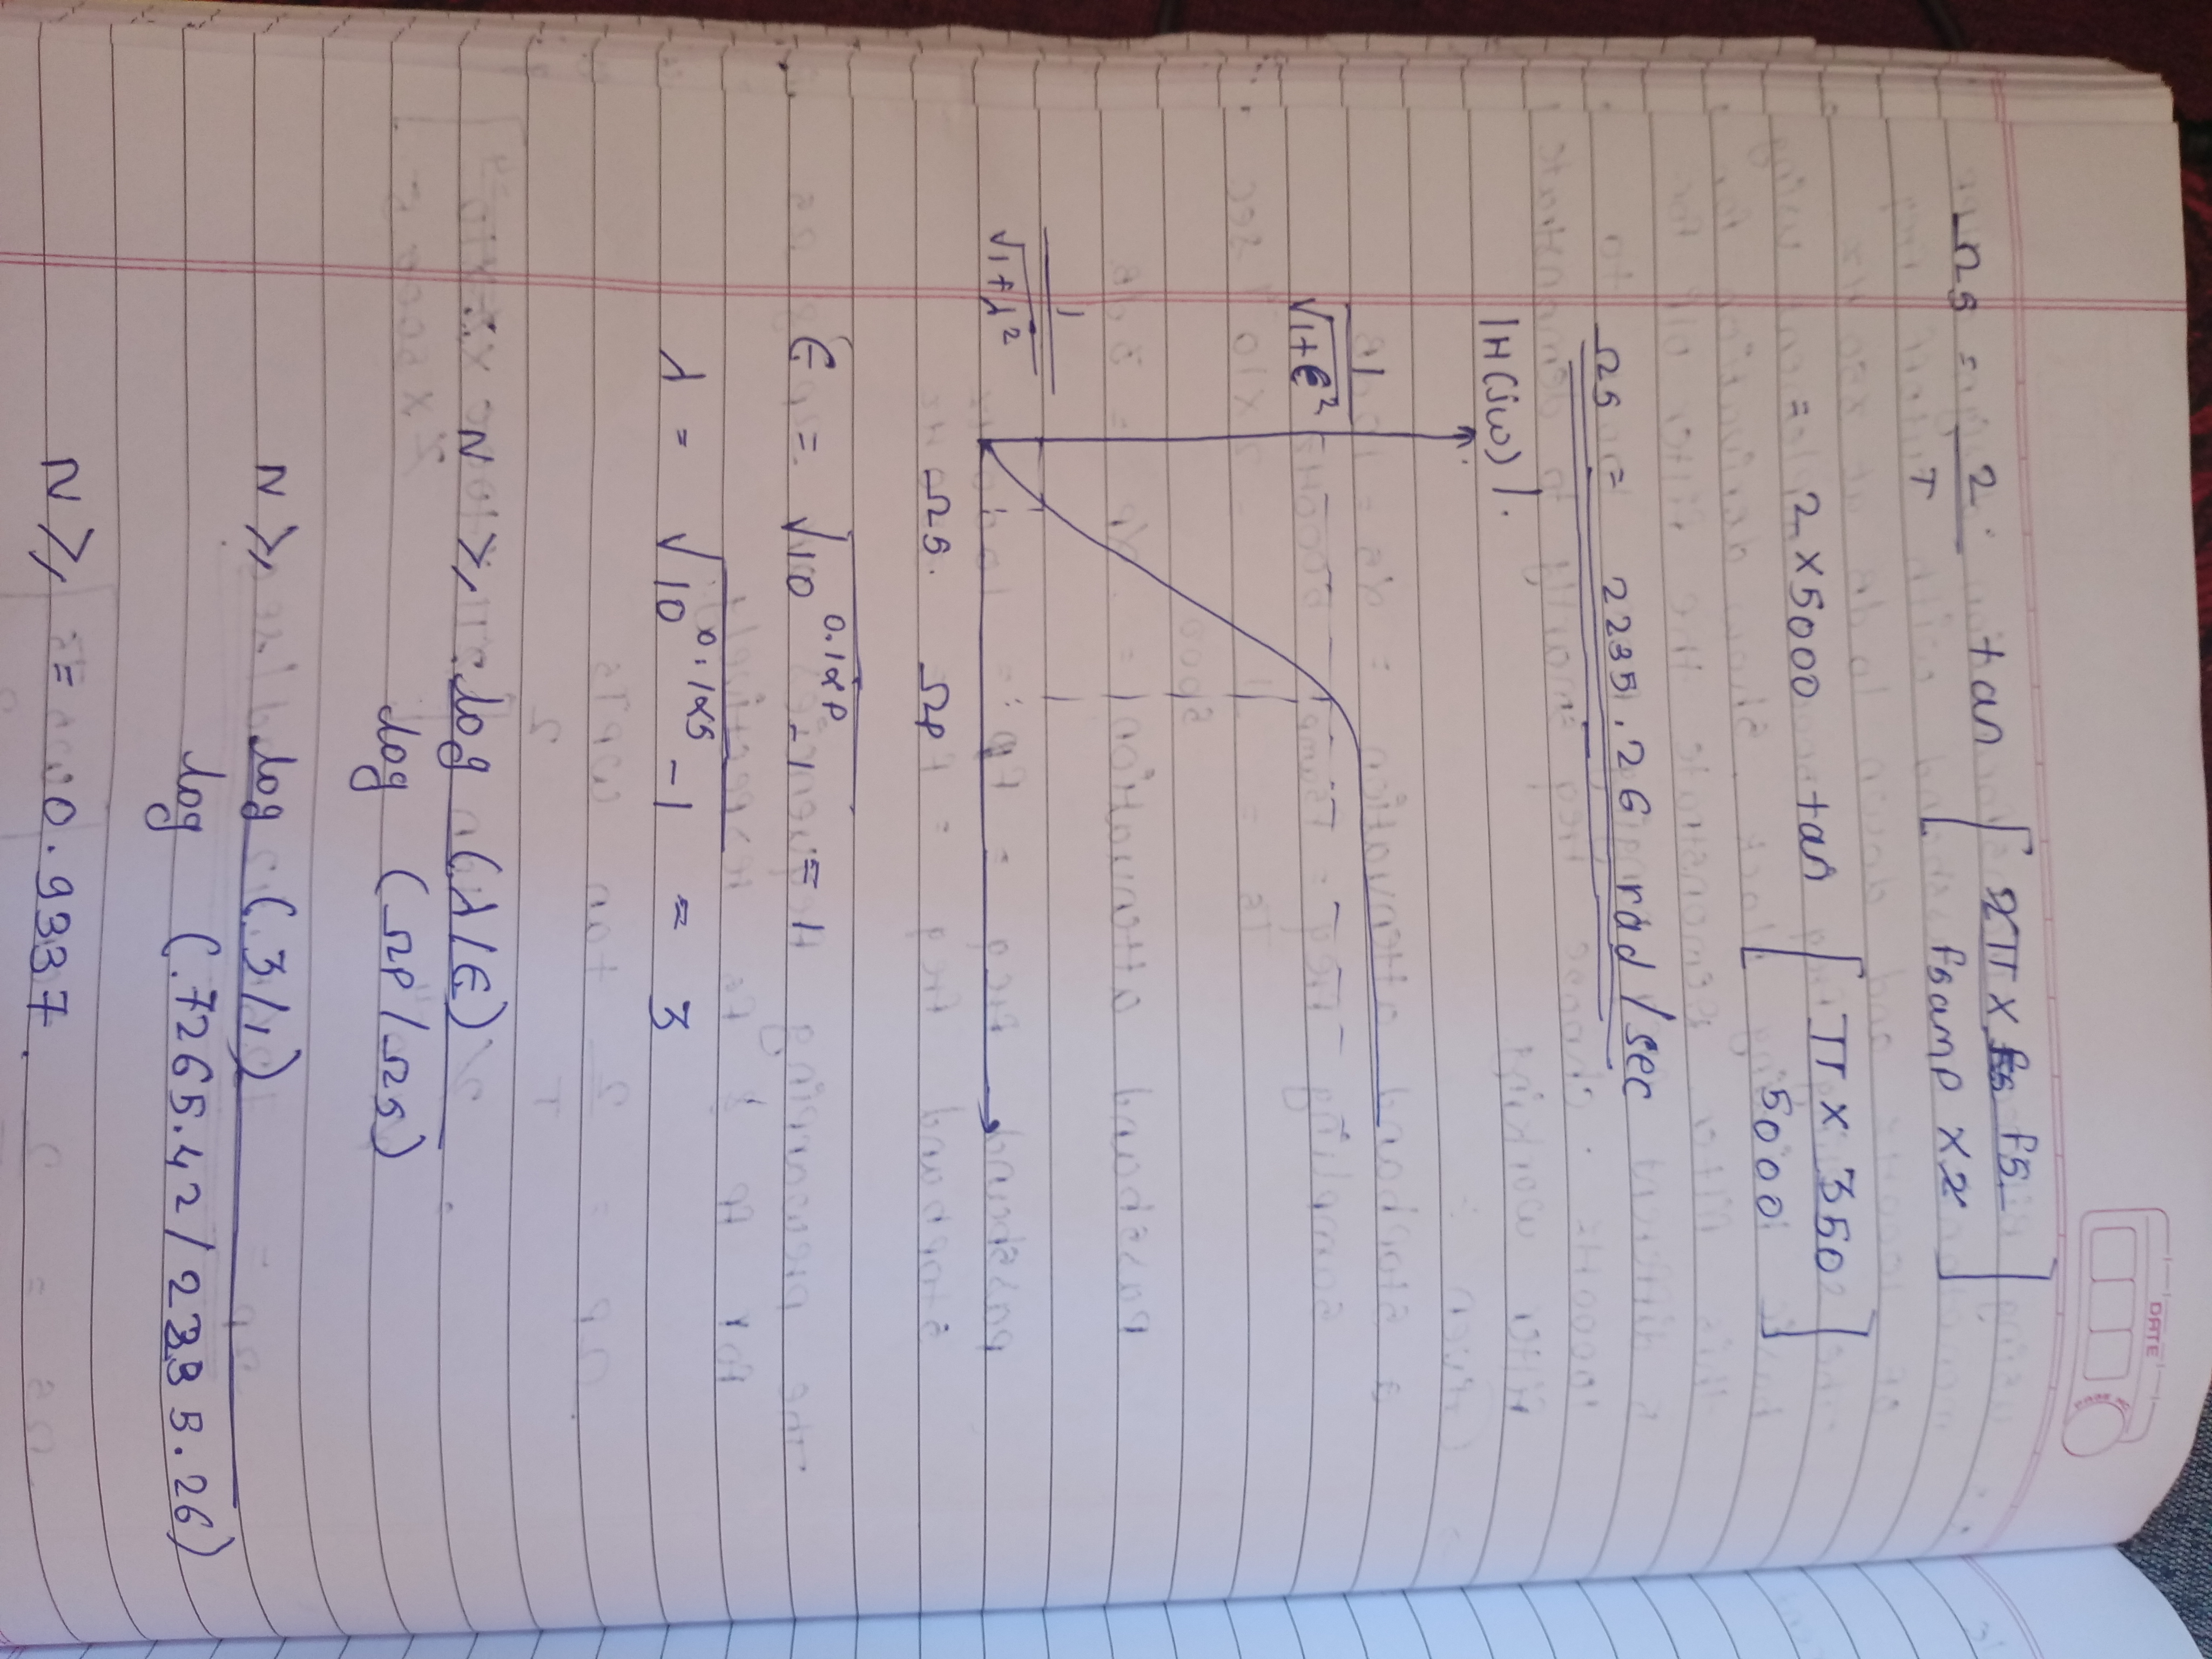 DATE
Ωs = 2/T tan [ 2π x fs / fsamp x 2 ]
= 2 x 5000 tan [ π x 350 / 5000 ]
Ωs = 2235.26 rad/sec
|H(jω)|.
1/√1+ϵ²
1/√1+λ²
Ωs. Ωp
ϵ = √10^0.1αp - 1 = 1
λ = √10^0.1αs - 1 = 3
N ≥ log (λ/ϵ) / log (Ωp/Ωs)
N ≥ log (3/1) / log (7265.42/2235.26)
N ≥ = 0.9337